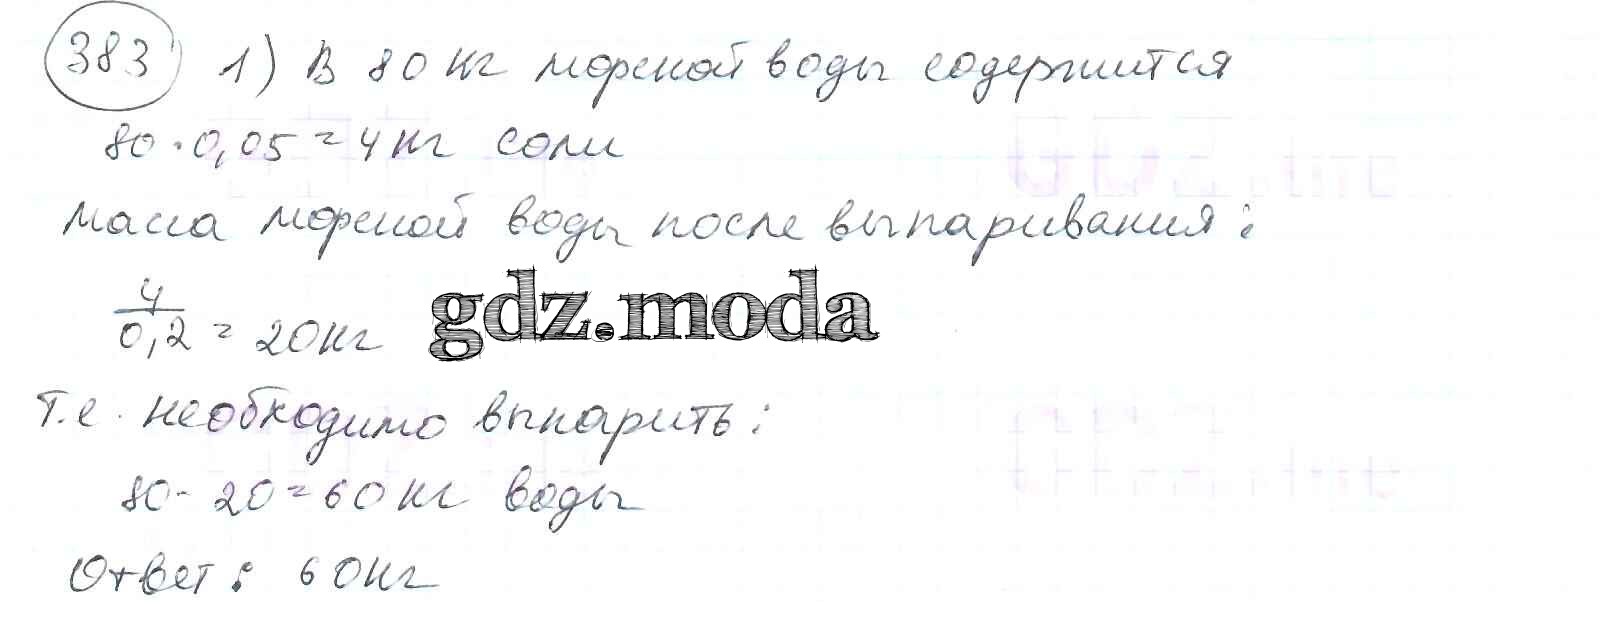 383 1) В 80 кг морской воды содержится
80 · 0,05 = 4 кг соли
Масса морской воды после выпаривания:
4
0,2 = 20 кг
gdz.moda
т.е. необходимо выпарить:
80 - 20 = 60 кг воды
Ответ: 60 кг